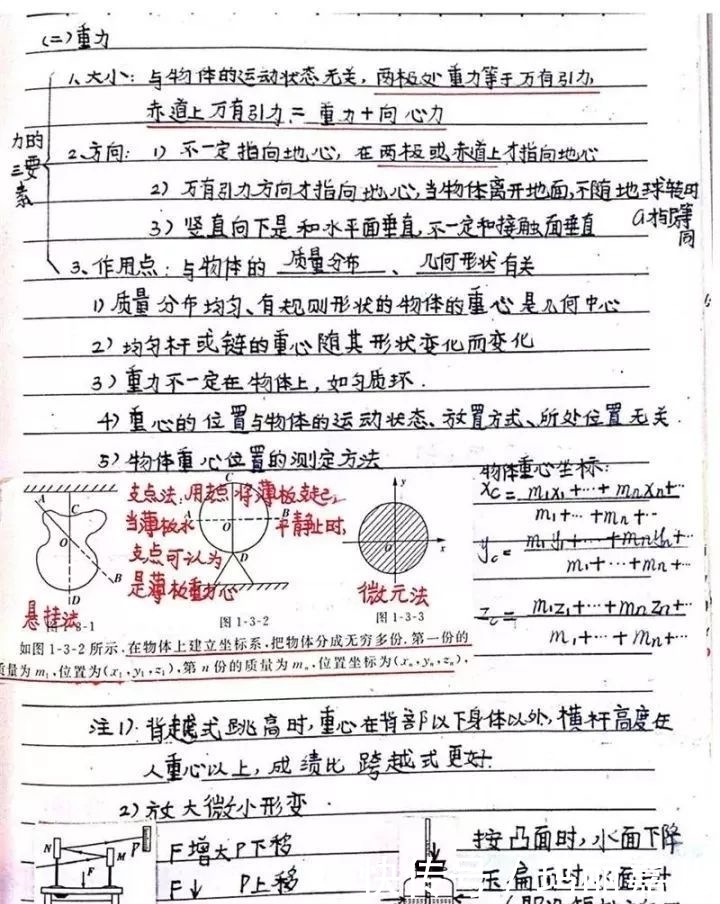 (二)重力
1、大小：与物体的运动状态无关，两极处重力等于万有引力，
赤道上万有引力 = 重力+向心力
力的三要素
2、方向：1) 不一定指向地心，在两极或赤道上才指向地心
2) 万有引力方向才指向地心，当物体离开地面，不随地球转时
相等
同
3) 竖直向下是和水平面垂直，不一定和接触面垂直
3、作用点：与物体的 质量分布 、几何形状有关
1) 质量分布均匀、有规则形状的物体的重心是几何中心
2) 均匀杆或链的重心随其形状变化而变化
3) 重力不一定在物体上，如匀质环.
4) 重心的位置与物体的运动状态、放置方式、所处位置无关.
5) 物体重心位置的测定方法
A C O B D
悬挂法
1-3-1
支点法：用支点将薄板支起，
当薄板水平静止时，
支点可认为
是薄板重心
C A O B D
图 1-3-2
y O x
微元法
图 1-3-3
物体重心坐标：
xc = m1x1+···+mnxn+··
m1+··+mn+··
yc = m1y1+···+mnyn+··
m1+···+mn+··
zc = m1z1+···+mnzn+··
m1+··+mn+··
如图1-3-2所示，在物体上建立坐标系，把物体分成无穷多份，第一份的
质量为m1，位置为(x1，y1，z1)，第n份的质量为mn，位置坐标为(xn，yn，zn)，
注1): 背越式跳高时，重心在背部以下身体以外，横杆高度在
人重心以上，成绩比跨越式更好.
2) 放大微小形变.
N M P F
F增大P下移
F↓ P上移
按凸面时，水面下降
压扁面时